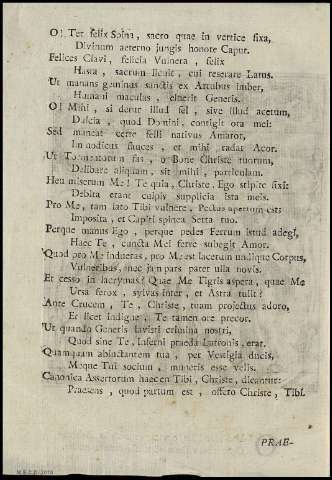 O! Ter felix Spina, sacro quae in vertice fixa,
Divinum aeterno jungis honore Caput.
Felices Clavi, felicia Vulnera, felix
Hasta, sacrum licuit, cui reserare Latus.
Ut manans geminus sanctis ex Artubus imber,
Humani maculas, eluerit Generis.
O! Mihi, si detur illud fel, sive illud acetum,
Dulcia, quod Domini, contigit ora mei:
Sed maneat certe felli nativus Amaror,
Immodicus fauces, et mihi radat Acor.
Ut Tormentorum fas, o Bone Christe tuorum,
Delibare aliquam, sit mihi, particulam.
Heu miserum Me! Te quia, Christe, Ego stipite fixi:
Debita erant culpis supplicia ista meis.
Pro Me, tam lato Tibi vulnere, Pectus apertum est:
Imposita, et Capiti spinea Serta tuo.
Perque manus Ego, perque pedes Ferrum istud adegi,
Haec Te, cuncta Mei ferre subegit Amor.
Quod pro Me indueras, pro Me est lacerum undique Corpus,
Vulneribus, nec jam pars patet ulla novis.
Et cesso in lacrymas? Quae Me Tigris aspera, quae Me
Ursa ferox, sylvas inter, et Astra tulit?
Ante Crucem, Te, Christe, tuam projectus adoro,
Et licet indigne, Te tamen ore precor.
Ut quando Generis lavisti crimina nostri,
Quod sine Te, Inferni praeda Latronis, erat.
Quamquam abluctantem tua, per Vestigia ducis,
Meque Tui socium, muneris esse velis.
Canonica Assertorum haec en Tibi, Christe, dicantur:
Praesens, quod partum est, offero Christe, Tibi.
PRAE-